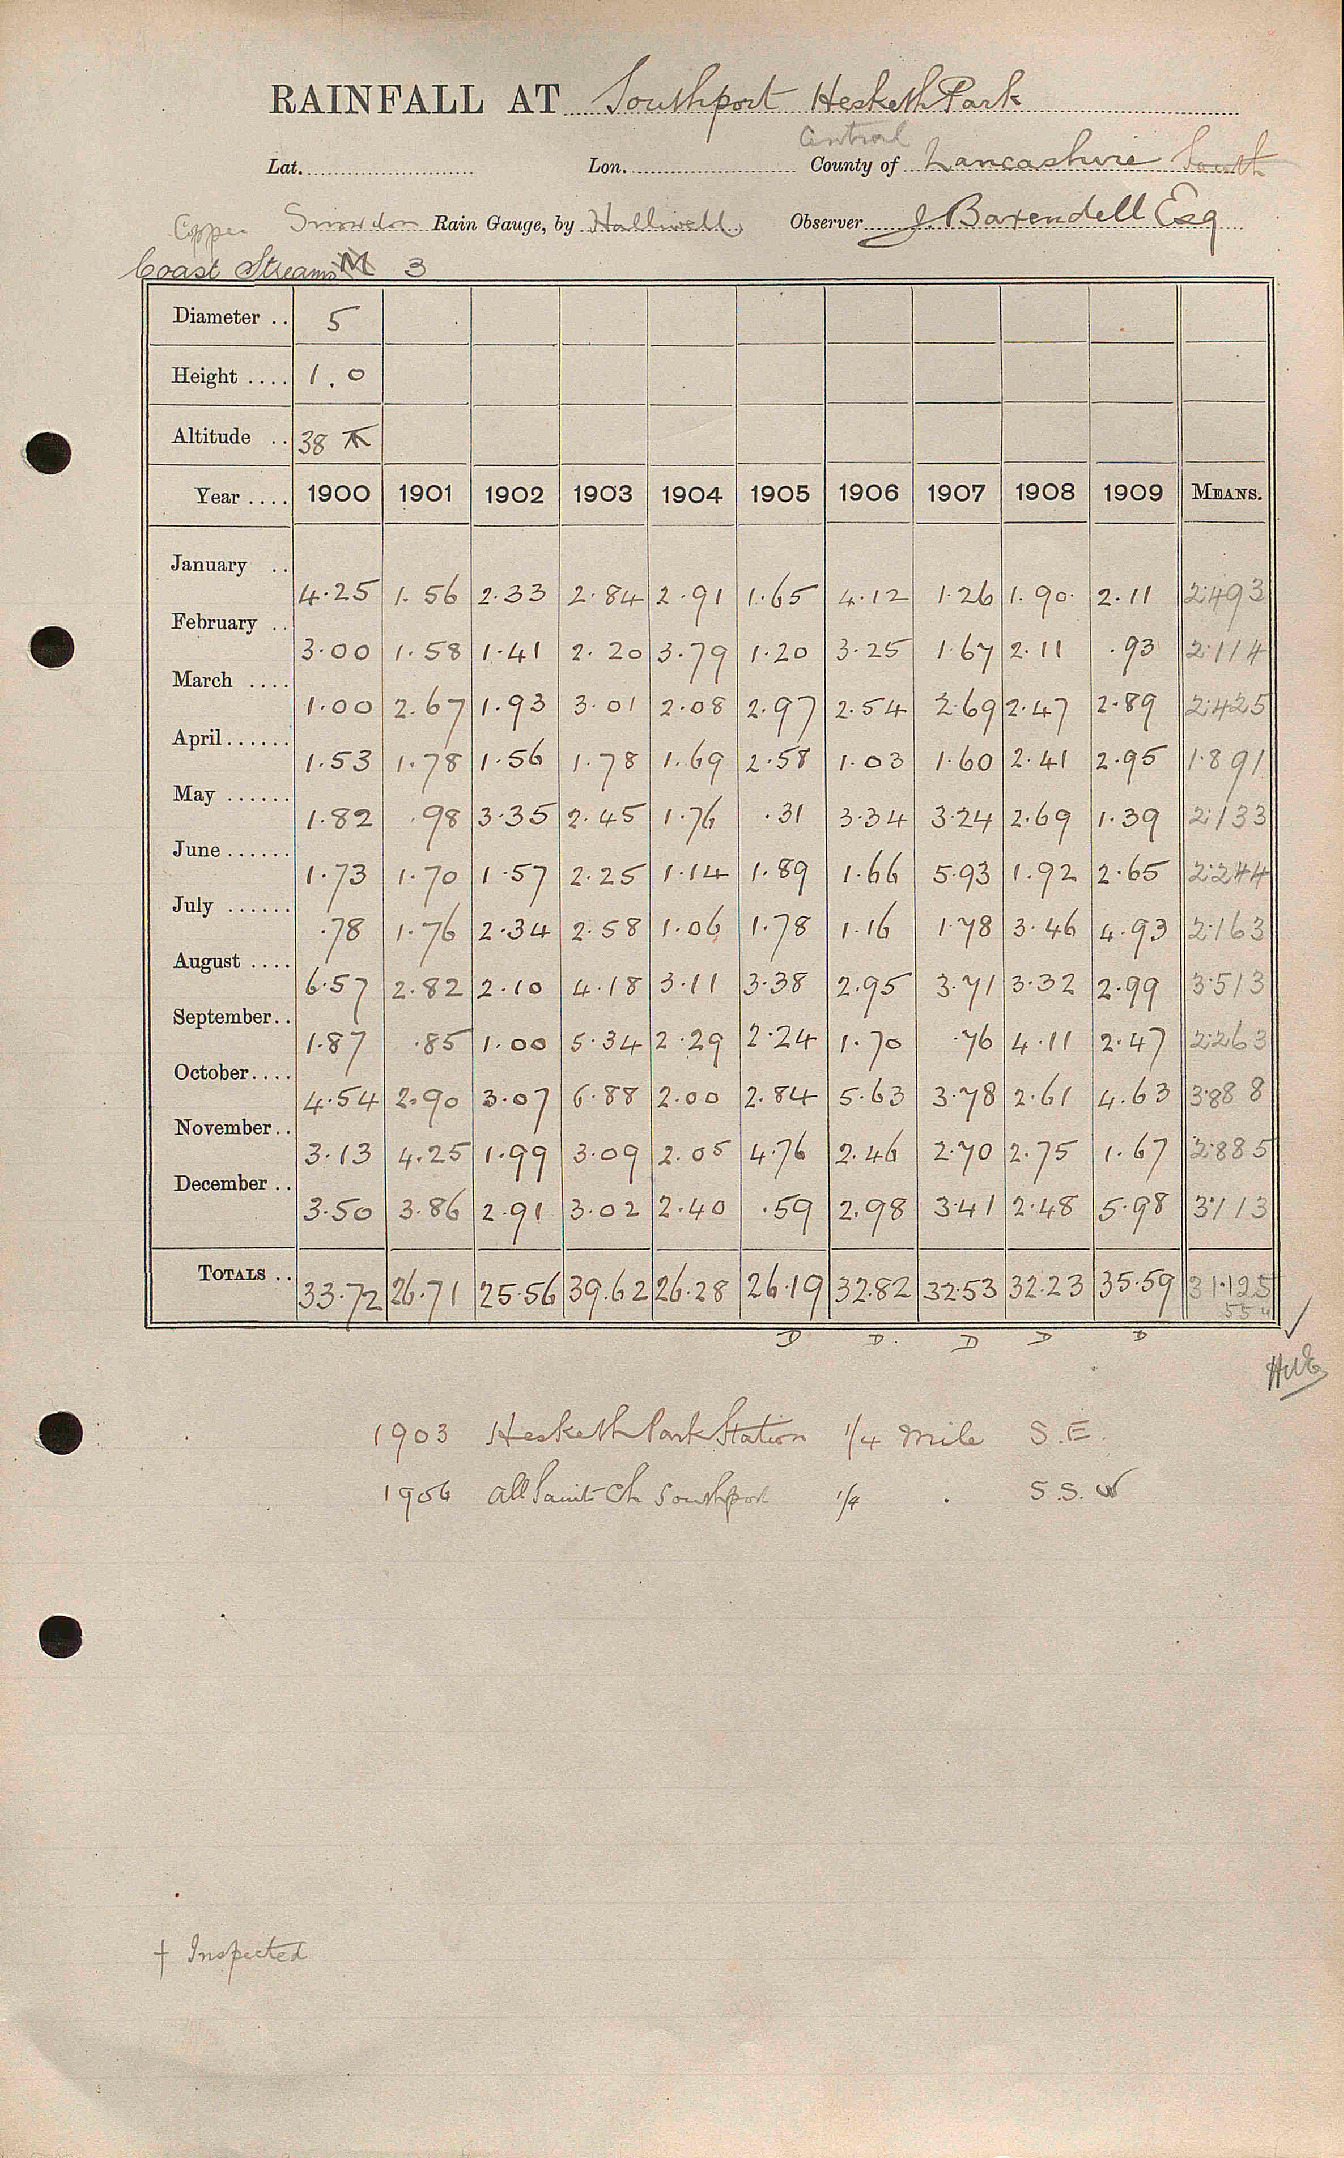 RAINFALL AT Southport Hesketh Park
Central
Lat. Lon. County of Lancashire South
Copper Snowdon Rain Gauge, by Halliwell Observer J. Baxendell Esq
Coast Streams M 3
Diameter .. 5
Height .... 1.0
Altitude .. 38
Year .... 1900 1901 1902 1903 1904 1905 1906 1907 1908 1909 MEANS.
January .. 4.25 1.56 2.33 2.84 2.91 1.65 4.12 1.26 1.90 2.11 2.493
February .. 3.00 1.58 1.41 2.20 3.79 1.20 3.25 1.67 2.11 .93 2.114
March .... 1.00 2.67 1.93 3.01 2.08 2.97 2.54 2.69 2.47 2.89 2.425
April...... 1.53 1.78 1.56 1.78 1.69 2.58 1.03 1.60 2.41 2.95 1.891
May ...... 1.82 .98 3.35 2.45 1.76 .31 3.34 3.24 2.69 1.39 2.133
June ...... 1.73 1.70 1.57 2.25 1.14 1.89 1.66 5.93 1.92 2.65 2.244
July ...... .78 1.76 2.34 2.58 1.06 1.78 1.16 1.78 3.46 4.93 2.163
August .... 6.57 2.82 2.10 4.18 3.11 3.38 2.95 3.71 3.32 2.99 3.513
September.. 1.87 .85 1.00 5.34 2.29 2.24 1.70 .76 4.11 2.47 2.263
October.... 4.54 2.90 3.07 6.88 2.00 2.84 5.63 3.78 2.61 4.63 3.888
November.. 3.13 4.25 1.99 3.09 2.05 4.76 2.46 2.70 2.75 1.67 2.885
December .. 3.50 3.86 2.91 3.02 2.40 .59 2.98 3.41 2.48 5.98 3.113
TOTALS .. 33.72 26.71 25.56 39.62 26.28 26.19 32.82 32.53 32.23 35.59 31.125
D D. D D D
1903 Hesketh Park Station 1/4 mile S.E.
1906 All Saints Ch Southport 1/4 . S.S.W
† Inspected